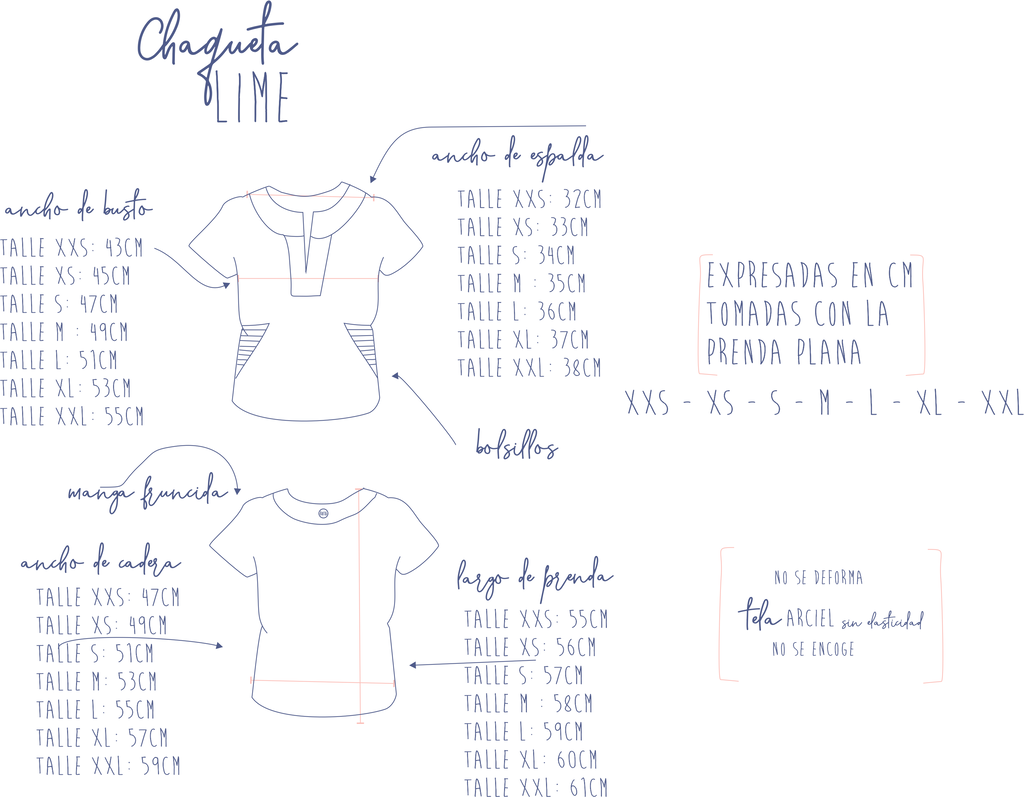 Chaqueta
LIME
ancho de espalda
TALLE XXS: 32CM
TALLE XS: 33CM
TALLE S: 34CM
TALLE M : 35CM
TALLE L: 36CM
TALLE XL: 37CM
TALLE XXL: 38CM
ancho de busto
TALLE XXS: 43CM
TALLE XS: 45CM
TALLE S: 47CM
TALLE M : 49CM
TALLE L: 51CM
TALLE XL: 53CM
TALLE XXL: 55CM
EXPRESADAS EN CM
TOMADAS CON LA
PRENDA PLANA
XXS - XS - S - M - L - XL - XXL
bolsillos
manga fruncida
ancho de cadera
TALLE XXS: 47CM
TALLE XS: 49CM
TALLE S: 51CM
TALLE M: 53CM
TALLE L: 55CM
TALLE XL: 57CM
TALLE XXL: 59CM
largo de prenda
TALLE XXS: 55CM
TALLE XS: 56CM
TALLE S: 57CM
TALLE M : 58CM
TALLE L: 59CM
TALLE XL: 60CM
TALLE XXL: 61CM
NO SE DEFORMA
tela ARCIEL sin elasticidad
NO SE ENCOGE